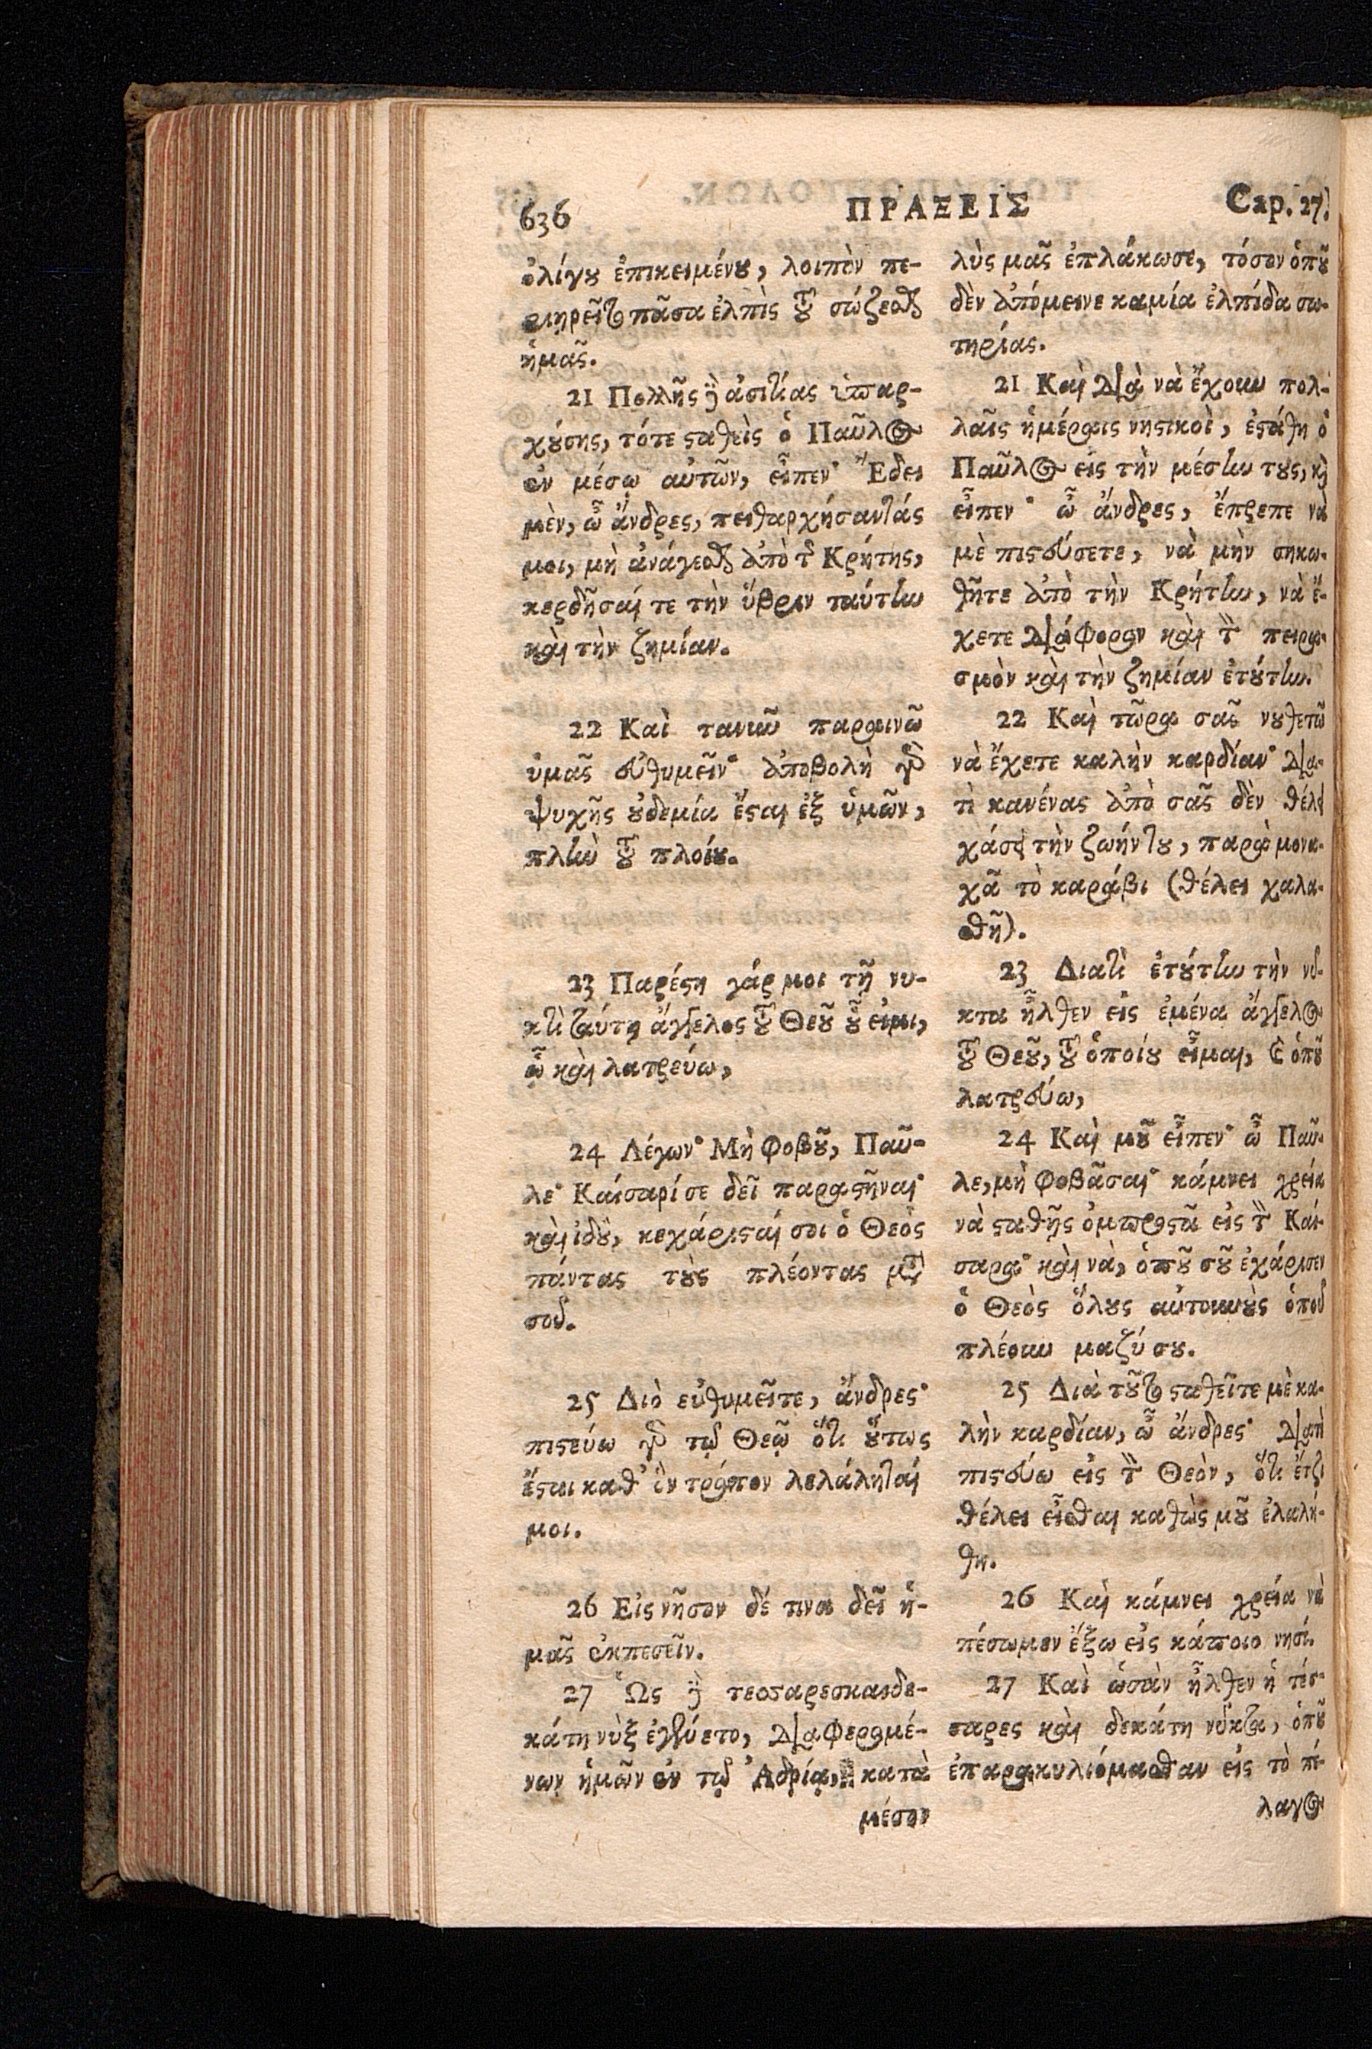 636 ΠΡΑΞΕΙΣ Cap. 27.
ὀλίγȣ ἐπικειμένȣ, λοιπὸν πε-
ριῃρεῖτο πᾶσα ἐλπὶς τȣ͂ σώζεσθαι
ἡμᾶς.
21 Πολλῆς δὲ ἀσιτίας ὑπαρ-
χȣ́σης, τότε ϛαθεὶς ὁ Παῦλος
ἐν μέσῳ αὐτῶν, εἶπεν· Ἔδει
μὲν, ὦ ἄνδρες, πειθαρχήσαντάς
μοι, μὴ ἀνάγεσθαι ἀπὸ τῆς Κρήτης,
κερδῆσαί τε τὴν ὕβριν ταύτην
καὶ τὴν ζημίαν.
22 Καὶ τανῦν παραινῶ
ὑμᾶς εὐθυμεῖν· ἀποβολὴ γὰρ
ψυχῆς ȣ̓δεμία ἔϛαι ἐξ ὑμῶν,
πλὴν τȣ͂ πλοίȣ.
23 Παρέϛη γάρ μοι τῇ νυ-
κτὶ ταύτῃ ἄγγελος τȣ͂ Θεȣ͂ ȣ͗͂ εἰμι,
ᾧ καὶ λατρεύω,
24 Λέγων· Μὴ φοβȣ͂, Παῦ-
λε· Καίσαρί σε δεῖ παραϛῆναι·
καὶ ἰδȣ̀, κεχάριϛαί σοι ὁ Θεὸς
πάντας τȣ̀ς πλέοντας μετὰ
σοῦ.
25 Διὸ εὐθυμεῖτε, ἄνδρες·
πιϛεύω γὰρ τῷ Θεῷ ὅτι ȣ̔́τως
ἔϛαι καθ' ὃν τρόπον λελάληταί
μοι.
26 Εἰς νῆσον δέ τινα δεῖ ἡ-
μᾶς ἐκπεσεῖν.
27 Ὡς δὲ τεσσαρεσκαιδε-
κάτη νὺξ ἐγένετο, διαφερομέ-
νων ἡμῶν ἐν τῷ Ἀδρίᾳ, κατὰ
μέσον
λὺς μᾶς ἐπλάκωσε, τόσον ὁπȣ͂
δὲν ἀπόμεινε καμία ἐλπίδα σω-
τηρίας.
21 Καὶ διὰ νὰ ἔχουν πολ-
λαῖς ἡμέραις νηϛικοὶ, ἐϛάθη ὁ
Παῦλος εἰς τὴν μέσην τȣς, καὶ
εἶπεν· ὦ ἄνδρες, ἔπρεπε νὰ
μὲ πιϛεύσετε, νὰ μὴν σηκω-
θῆτε ἀπὸ τὴν Κρήτην, νὰ ἔ-
χετε διάφορον καὶ τὸν πειρα-
σμὸν καὶ τὴν ζημίαν ἐτȣ́την.
22 Καὶ τῶρα σᾶς νȣθετῶ
νὰ ἔχετε καλὴν καρδίαν· δια-
τὶ κανένας ἀπὸ σᾶς δὲν θέλει
χάσει τὴν ζωήν τȣ, παρὰ μονα-
χᾶ τὸ καράβι (θέλει χαλα-
σθῆ).
23 Διατὶ ἐτȣ́την τὴν νύ-
κτα ἦλθεν εἰς ἐμένα ἄγγελος
τȣ͂ Θεȣ͂, τȣ͂ ὁποίȣ εἶμαι, καὶ ὁπȣ͂
λατρεύω,
24 Καὶ μȣ͂ εἶπεν· ὦ Παῦ-
λε, μὴ φοβᾶσαι· κάμνει χρεία
νὰ ϛαθῇς ὀμπροϛᾶ εἰς τὸν Καί-
σαρα· καὶ νὰ, ὁπȣ͂ σȣ͂ ἐχάρισεν
ὁ Θεὸς ὅλȣς αὐτουνοὺς ὁποῦ
πλέουν μαζύ σȣ.
25 Διὰ τȣ͂το ϛαθεῖτε μὲ κα-
λὴν καρδίαν, ὦ ἄνδρες· διατὶ
πιϛεύω εἰς τὸν Θεὸν, ὅτι ἔτζι
θέλει εἶσθαι καθὼς μȣ͂ ἐλαλή-
θη.
26 Καὶ κάμνει χρεία νὰ
πέσωμεν ἔξω εἰς κάποιο νησί.
27 Καὶ ὡσὰν ἦλθεν ἡ τέσ-
σαρες καὶ δεκάτη νύκτα, ὁπȣ͂
ἐπαρακυλιόμασθαν εἰς τὸ πέ-
λαγος